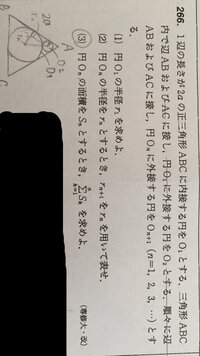 266. 1辺の長さが2aの正三角形ABCに内接する円をO₁とする。三角形ABC
内で辺ABおよびACに接し,円O₁に外接する円をO₂とする。順々に辺
ABおよびACに接し,円Oₙに外接する円をOₙ₊₁ (n=1, 2, 3, …) とす
る。
(1) 円O₁の半径r₁を求めよ。
(2) 円Oₙの半径をrₙとするとき,rₙ₊₁をrₙを用いて表せ。
(3) 円Oₙの面積をSₙとするとき,∞Σk=1 Sₖを求めよ。
(専修大・改)
A
2a
O₂
O₁
B